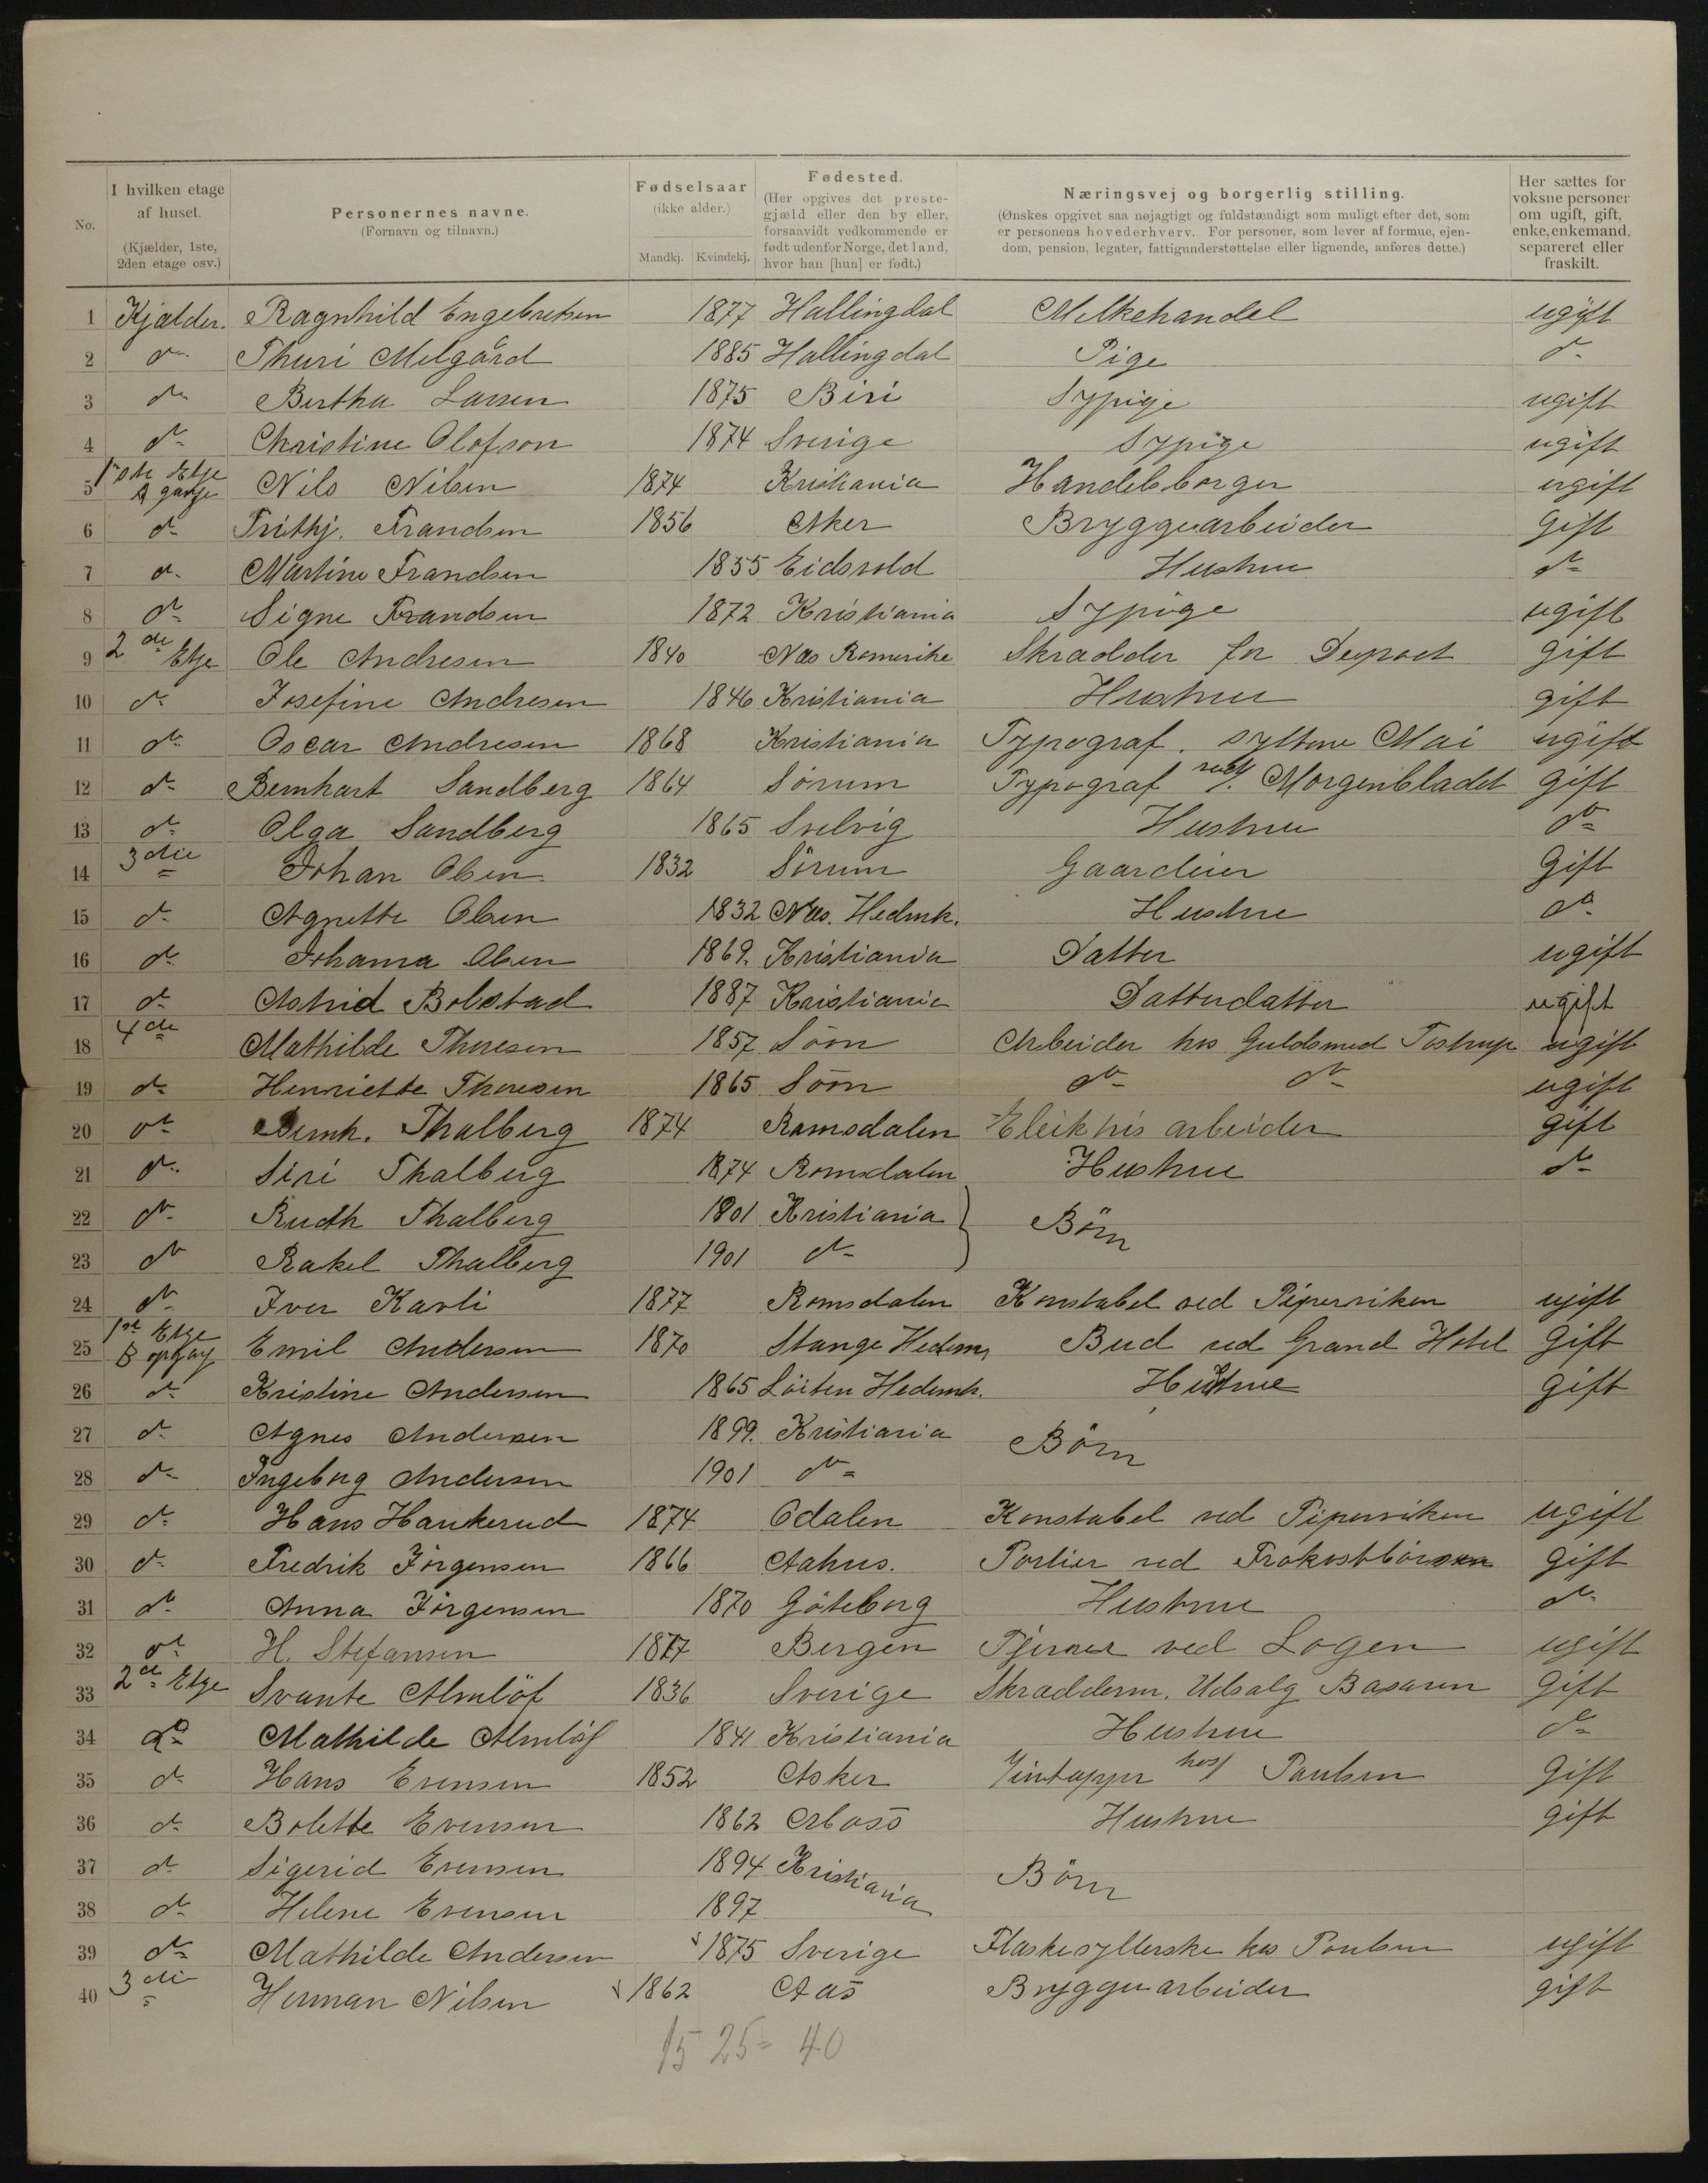 No.
I hvilken etage af huset. (Kjælder, 1ste, 2den etage osv.)
Personernes navne. (Fornavn og tilnavn.)
Fødselsaar (ikke alder.)
Mandkj. Kvindekj.
Fødested. (Her opgives det prestegjæld eller den by eller, forsaavidt vedkommende er født udenfor Norge, det land, hvor han [hun] er født.)
Næringsvej og borgerlig stilling. (Ønskes opgivet saa nøjagtigt og fuldstændigt som muligt efter det, som er personens hovederhverv. For personer, som lever af formue, ejendom, pension, legater, fattigunderstøttelse eller lignende, anføres dette.)
Her sættes for voksne personer om ugift, gift, enke, enkemand, separeret eller fraskilt.
1 Kjælder. Ragnhild Engebretsen 1877 Hallingdal Melkehandel ugift
2 do Thuri Melgård 1885 Hallingdal Pige do
3 do Bertha Larsen 1875 Biri Sypige ugift
4 do Christine Olofson 1874 Sverige Sypige ugift
5 1ste Etje A Nils Nilsen 1874 Kristiania Handelsborger ugift
6 do Frithj. Frandsen 1856 Aker Bryggearbeider Gift
7 do Martine Frandsen 1855 Eidsvold Hustrue do
8 do Signe Frandsen 1872 Kristiania Sypige ugift
9 2de Etje Ole Andresen 1840 Næs Romerike Skrædder for Depoet gift
10 do Josefine Andresen 1846 Kristiania Hustrue gift
11 do Oscar Andresen 1868 Kristiania Typograf. syttene Mai ugift
12 do Bernhart Sandberg 1864 Sörum Typograf ved Morgenbladet gift
13 do Olga Sandberg 1865 Svelvig Hustrue do
14 3die Johan Olsen 1832 Sörum Gaardeier Gift
15 do Agnette Olsen 1832 Næs. Hedmk. Hustrue do
16 do Johanna Olsen 1869. Kristiania Datter ugift
17 do Astrid Bolstad 1887 Kristiania Datterdatter ugift
18 4de Mathilde Thoresen 1857 Söön Arbeider hos Guldsmed Tostrup ugift
19 do Henriette Thoresen 1865 Söön do do ugift
20 do Bernh. Thalberg 1874 Romsdalen arbeider gift
21 do Siri Thalberg 1874 Romsdalen Hustrue do
22 do Ruth Thalberg 1901 Kristiania Börn
23 do Rakel Thalberg 1901 do
24 do Iver Kavli 1877 Romsdalen Konstabel ved Piperviken ugift
25 1ste Etge B opgag Emil Andersen 1870 Stange Hedem Bud ved Grand Hotel Gift
26 do Kristine Andersen 1865 Löiten Hedemk. Hustrue gift
27 do Agnes Andersen 1899. Kristiania Börn
28 do Ingeborg Andersen 1901 do
29 do Hans Haukerud 1874 Odalen Konstabel ved Piperviken ugift
30 do Fredrik Jörgensen 1866 Aahus. Portier ved Frokostbörsen gift
31 do Anna Jörgensen 1870 Göteborg Hustrue do
32 do H. Stefansen 1877 Bergen Tjener ved Logen ugift
33 2de Etge Svante Almlöf 1836 Sverige Skrædderm. Udsalg Basaren Gift
34 do Mathilde Almlöf 1841 Kristiania Hustrue do
35 do Hans Evensen 1852 Asker Vintapper hos Paulsen Gift
36 do Bolette Evensen 1862 Hustrue gift
37 do Sigerid Evensen 1894 Kristiania Börn
38 do Helene Evensen 1897
39 do Mathilde Andersen 1875 Sverige Flaskesyllerske hos Poulsen ugift
40 3die Herman Nilsen 1862 Aas Bryggearbeider gift
15 25 = 40